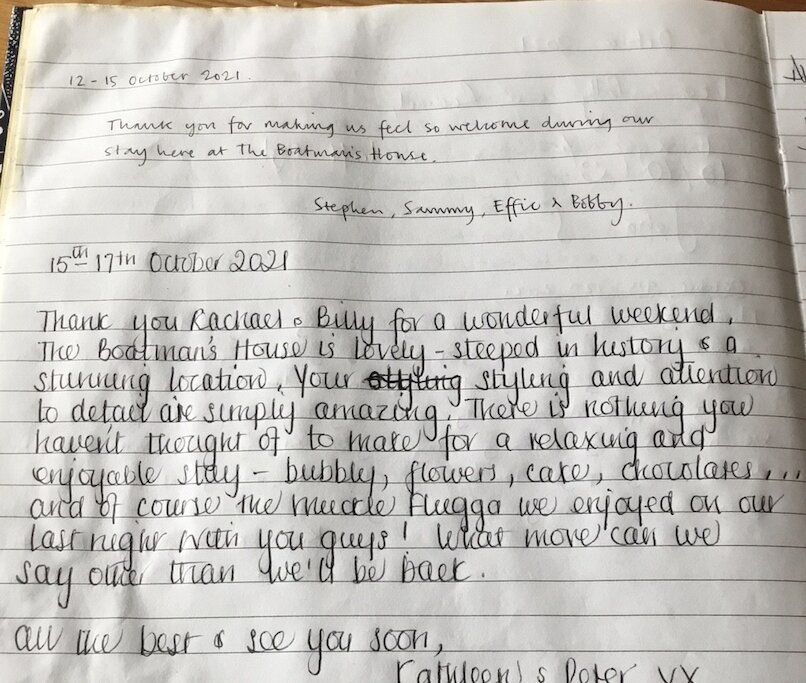 12-15 October 2021.
Thank you for making us feel so welcome during our
stay here at The Boatman's House.
Stephen, Sammy, Effie & Bobby.
15th 17th October 2021
Thank you Rachael & Billy for a wonderful weekend.
The Boatman's House is lovely - steeped in history & a
stunning location. Your styling and attention
to detail are simply amazing. There is nothing you
haven't thought of to make for a relaxing and
enjoyable stay - bubbly, flowers, cake, chocolates...
and of course the Muckle Flugga we enjoyed on our
last night with you guys! What more can we
say other than we'd be back.
All the best & see you soon,
& Peter xx